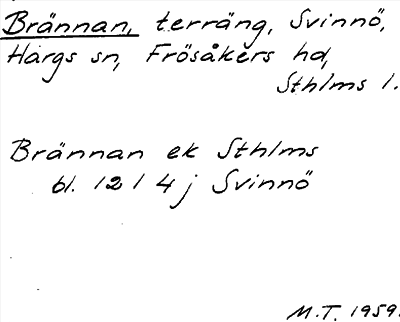 Brännan, terräng, Svinnö,
Hargs sn, Frösåkers hd,
Sthlms l.
Brännan ek Sthlms
bl. 12 I 4 j Svinnö
M.T. 1959.